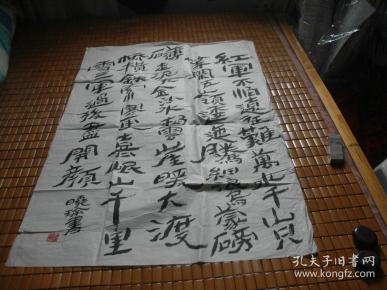 紅軍不怕遠征難萬水千山只
等閒五嶺逶迤騰細浪烏蒙磅
礴走泥丸金沙水拍雲崖暖大渡
橋橫鐵索寒更喜岷山千里
雪三軍過後盡開顏
孔夫子旧书网